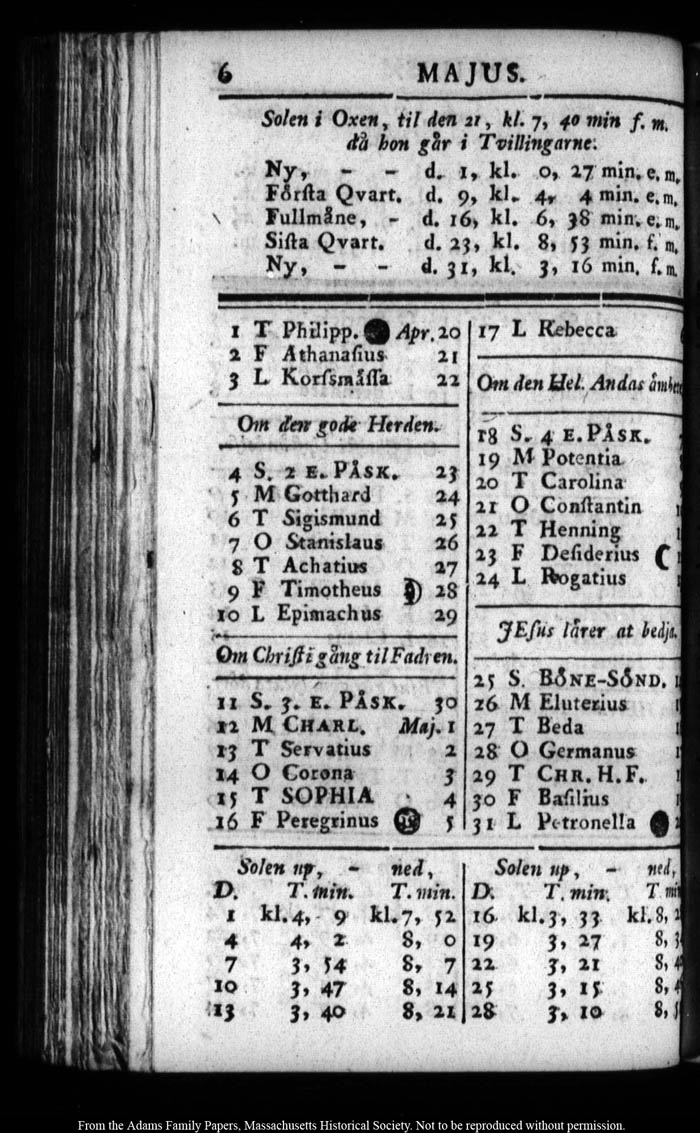 6 MAJUS.
Solen i Oxen, til den 21, kl. 7, 40 min f. m.
då hon går i Tvillingarne:
Ny, - - d. 1, kl. 0, 27 min. e. m.
Fŏrſta Qvart. d. 9, kl. 4, 4 min. e. m.
Fullmåne, - d. 16, kl. 6, 38 min. e. m.
Siſta Qvart. d. 23, kl. 8, 53 min. f. m.
Ny, - - d. 31, kl. 3, 16 min. f. m.
1 T Philipp. Apr. 20
2 F Athanaſius 21
3 L Korſsmåſſa 22
Om den gode Herden.
4 S. 2 E. PÅSK. 23
5 M Gotthard 24
6 T Sigismund 25
7 O Stanislaus 26
8 T Achatius 27
9 F Timotheus 28
10 L Epimachus 29
Om Chriſti gång til Fadren.
11 S. 3. E. PÅSK. 30
12 M CHARL. Maj. 1
13 T Servatius 2
14 O Corona 3
15 T SOPHIA 4
16 F Peregrinus 5
17 L Rebecca
Om den Hel. Andas
18 S. 4 E. PÅSK.
19 M Potentia
20 T Carolina
21 O Conſtantin
22 T Henning
23 F Deſiderius
24 L Rogatius
JEſus lårer at bedja.
25 S. BŎNE-SŎND.
26 M Eluterius
27 T Beda
28 O Germanus
29 T CHR. H. F.
30 F Baſilius
31 L Petronella
Solen up, - ned,
D. T. min. T. min.
1 kl. 4, 9 kl. 7, 52
4 4, 2 8, 0
7 3, 54 8, 7
10 3, 47 8, 14
13 3, 40 8, 21
Solen up, - ned,
D. T. min. T.
16 kl. 3, 33 kl. 8,
19 3, 27 8,
22 3, 21 8,
25 3, 15 8,
28 3, 10 8,
From the Adams Family Papers, Massachusetts Historical Society. Not to be reproduced without permission.